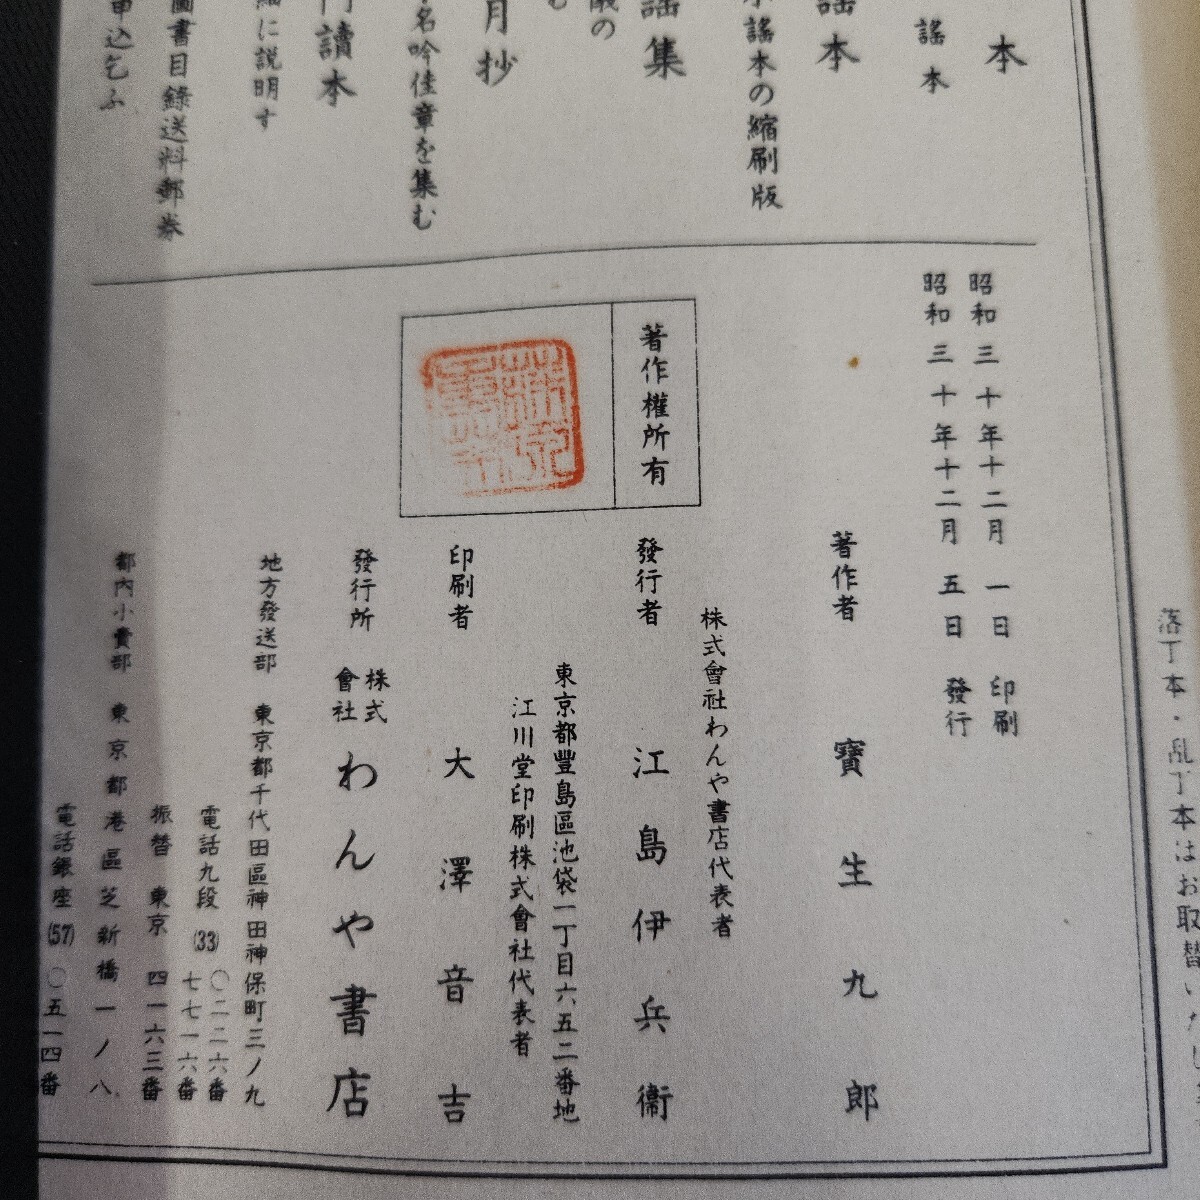 本
謠本
謠本
本謠本の縮刷版
謠集
儀の
月抄
名吟佳章を集む
門讀本
細に説明す
圖書目錄送料郵券
申込乞ふ
昭和三十年十二月一日印刷
昭和三十年十二月五日發行
著作權所有
著作者 寶生九郎
株式會社わんや書店代表者
發行者 江島伊兵衞
東京都豐島區池袋一丁目六五二番地
江川堂印刷株式會社代表者
印刷者 大澤音吉
發行所 株式會社 わんや書店
地方發送部 東京都千代田區神田神保町三ノ九
電話九段(33)〇二二六番
七七一六番
振替東京四一六三番
都内小賣部 東京都港區芝新橋一ノ八
電話銀座(57)〇五一四番
落丁本・乱丁本はお取替いたし